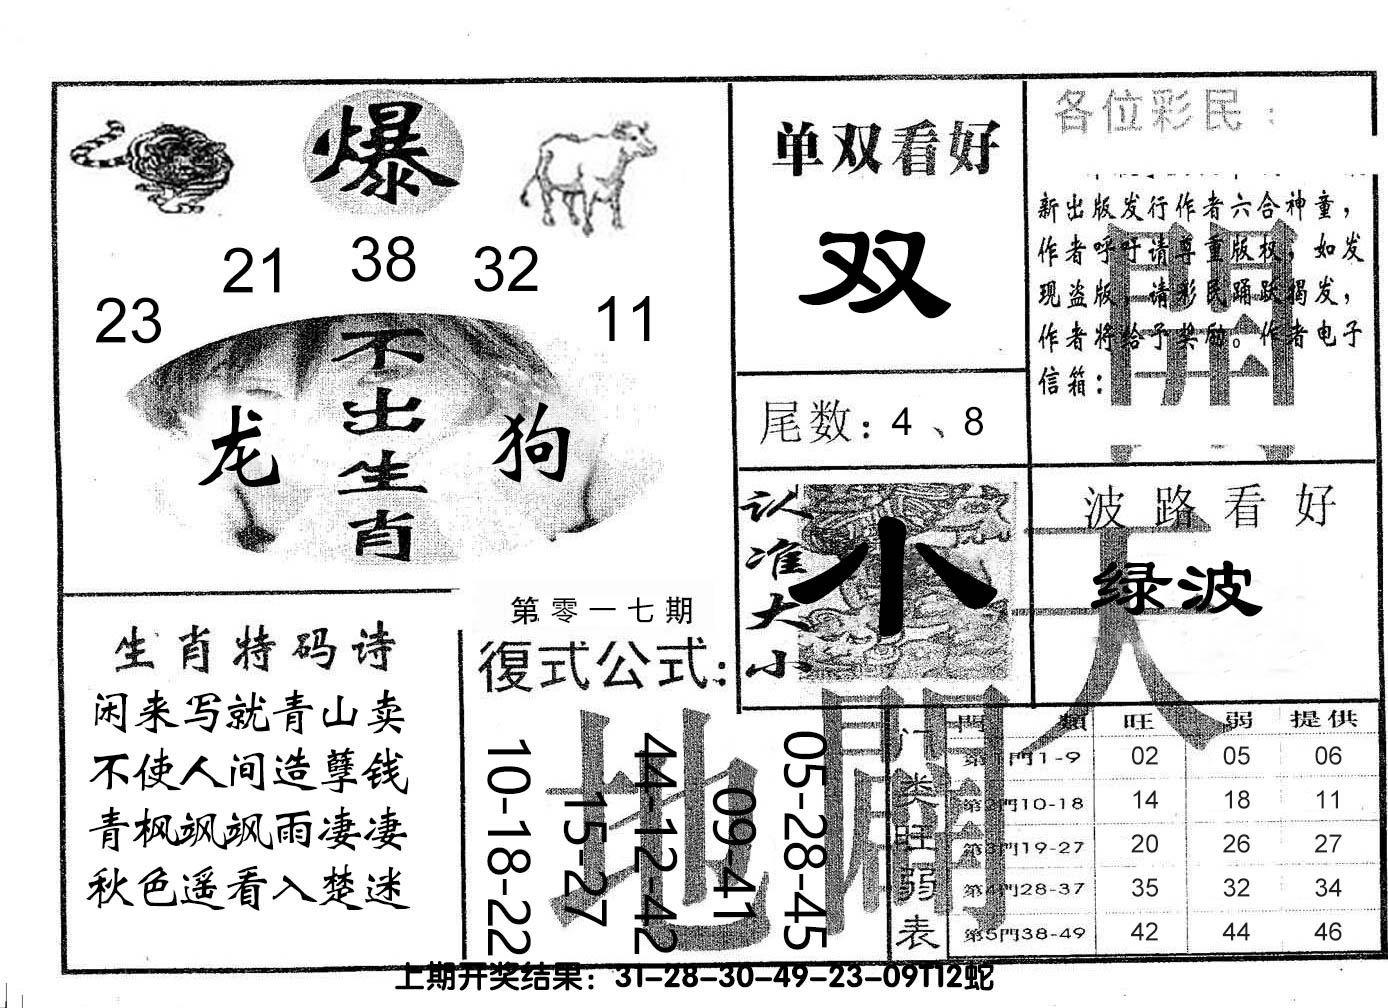 爆
23 21 38 32 11
不出生肖
龙 狗
单双看好
双
尾数：4、8
各位彩民：
新出版发行作者六合神童，
作者呼吁请尊重版权，如发
现盗版，请彩民踊跃揭发，
作者将给予奖励。作者电子
信箱：
開
认准大小
小
波路看好
绿波
天
生肖特码诗
闲来写就青山卖
不使人间造孽钱
青枫飒飒雨凄凄
秋色遥看入楚迷
第零一七期
復式公式：
10-18-22
15-27
44-12-42
09-41
05-28-45
地
門类旺弱表
門類 旺 弱 提供
第1門1-9 02 05 06
第2門10-18 14 18 11
第3門19-27 20 26 27
第4門28-37 35 32 34
第5門38-49 42 44 46
上期开奖结果：31-28-30-49-23-09T12蛇